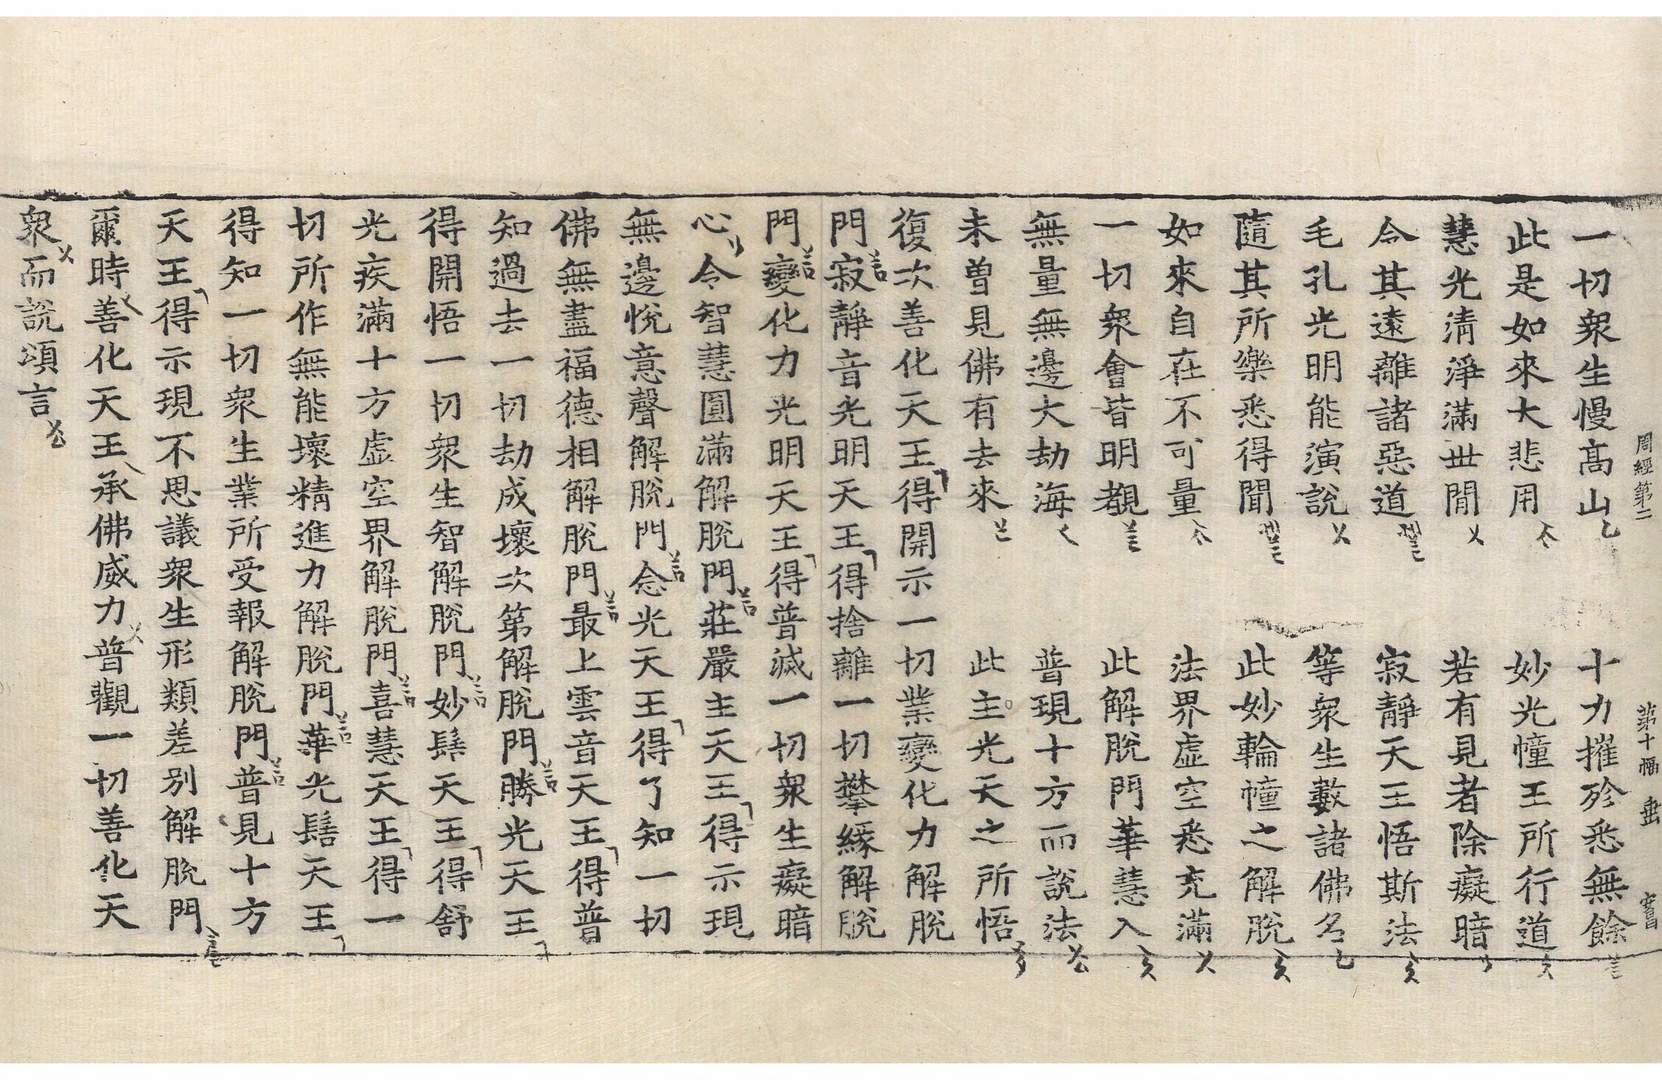 周經第二 第十幅 垂
一切衆生慢高山 十力摧殄悉無餘
此是如來大悲用 妙光幢王所行道
慧光清淨滿世閒 若有見者除癡暗
令其遠離諸惡道 寂靜天王悟斯法
毛孔光明能演說 等衆生數諸佛名
隨其所樂悉得聞 此妙輪幢之解脫
如來自在不可量 法界虛空悉充滿
一切衆會皆明覩 此解脫門華慧入
無量無邊大劫海 普現十方而說法
未曾見佛有去來 此主光天之所悟
復次善化天王得開示一切業變化力解脫
門寂靜音光明天王得捨離一切攀緣解脫
門變化力光明天王得普滅一切衆生癡暗
心令智慧圓滿解脫門莊嚴主天王得示現
無邊悅意聲解脫門念光天王得了知一切
佛無盡福德相解脫門最上雲音天王得普
知過去一切劫成壞次第解脫門勝光天王
得開悟一切衆生智解脫門妙髻天王得舒
光疾滿十方虛空界解脫門喜慧天王得一
切所作無能壞精進力解脫門華光髻天王
得知一切衆生業所受報解脫門普見十方
天王得示現不思議衆生形類差別解脫門
爾時善化天王承佛威力普觀一切善化天
衆而說頌言